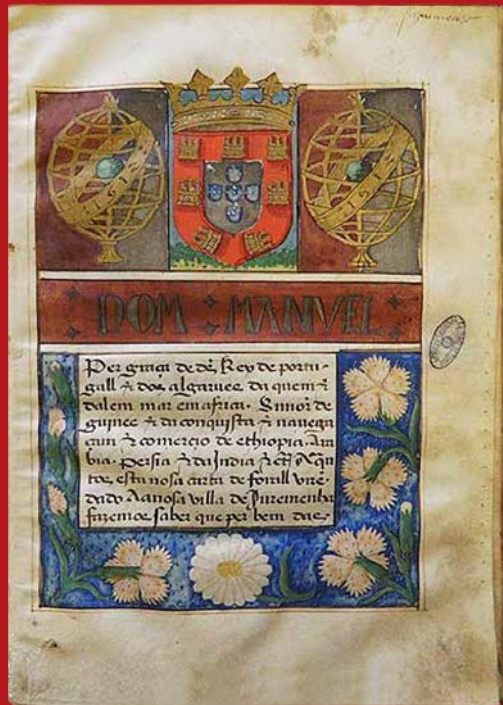 DOM MANVEL
Per graça de ds̃, Rey de portu-
gall ⁊ dos algarues, da quem ⁊
dalem mar em africa. Sñnor de
guinee ⁊ da conquista ⁊ nauega
cam ⁊ comercio de ethiopia. Ara
bia. persia ⁊ da India ⁊ cꝭ. A qñ
tos, esta nosa carta de forall virẽ
dado Aa nosa villa de Juremenha
fazemos, saber que per bem das,